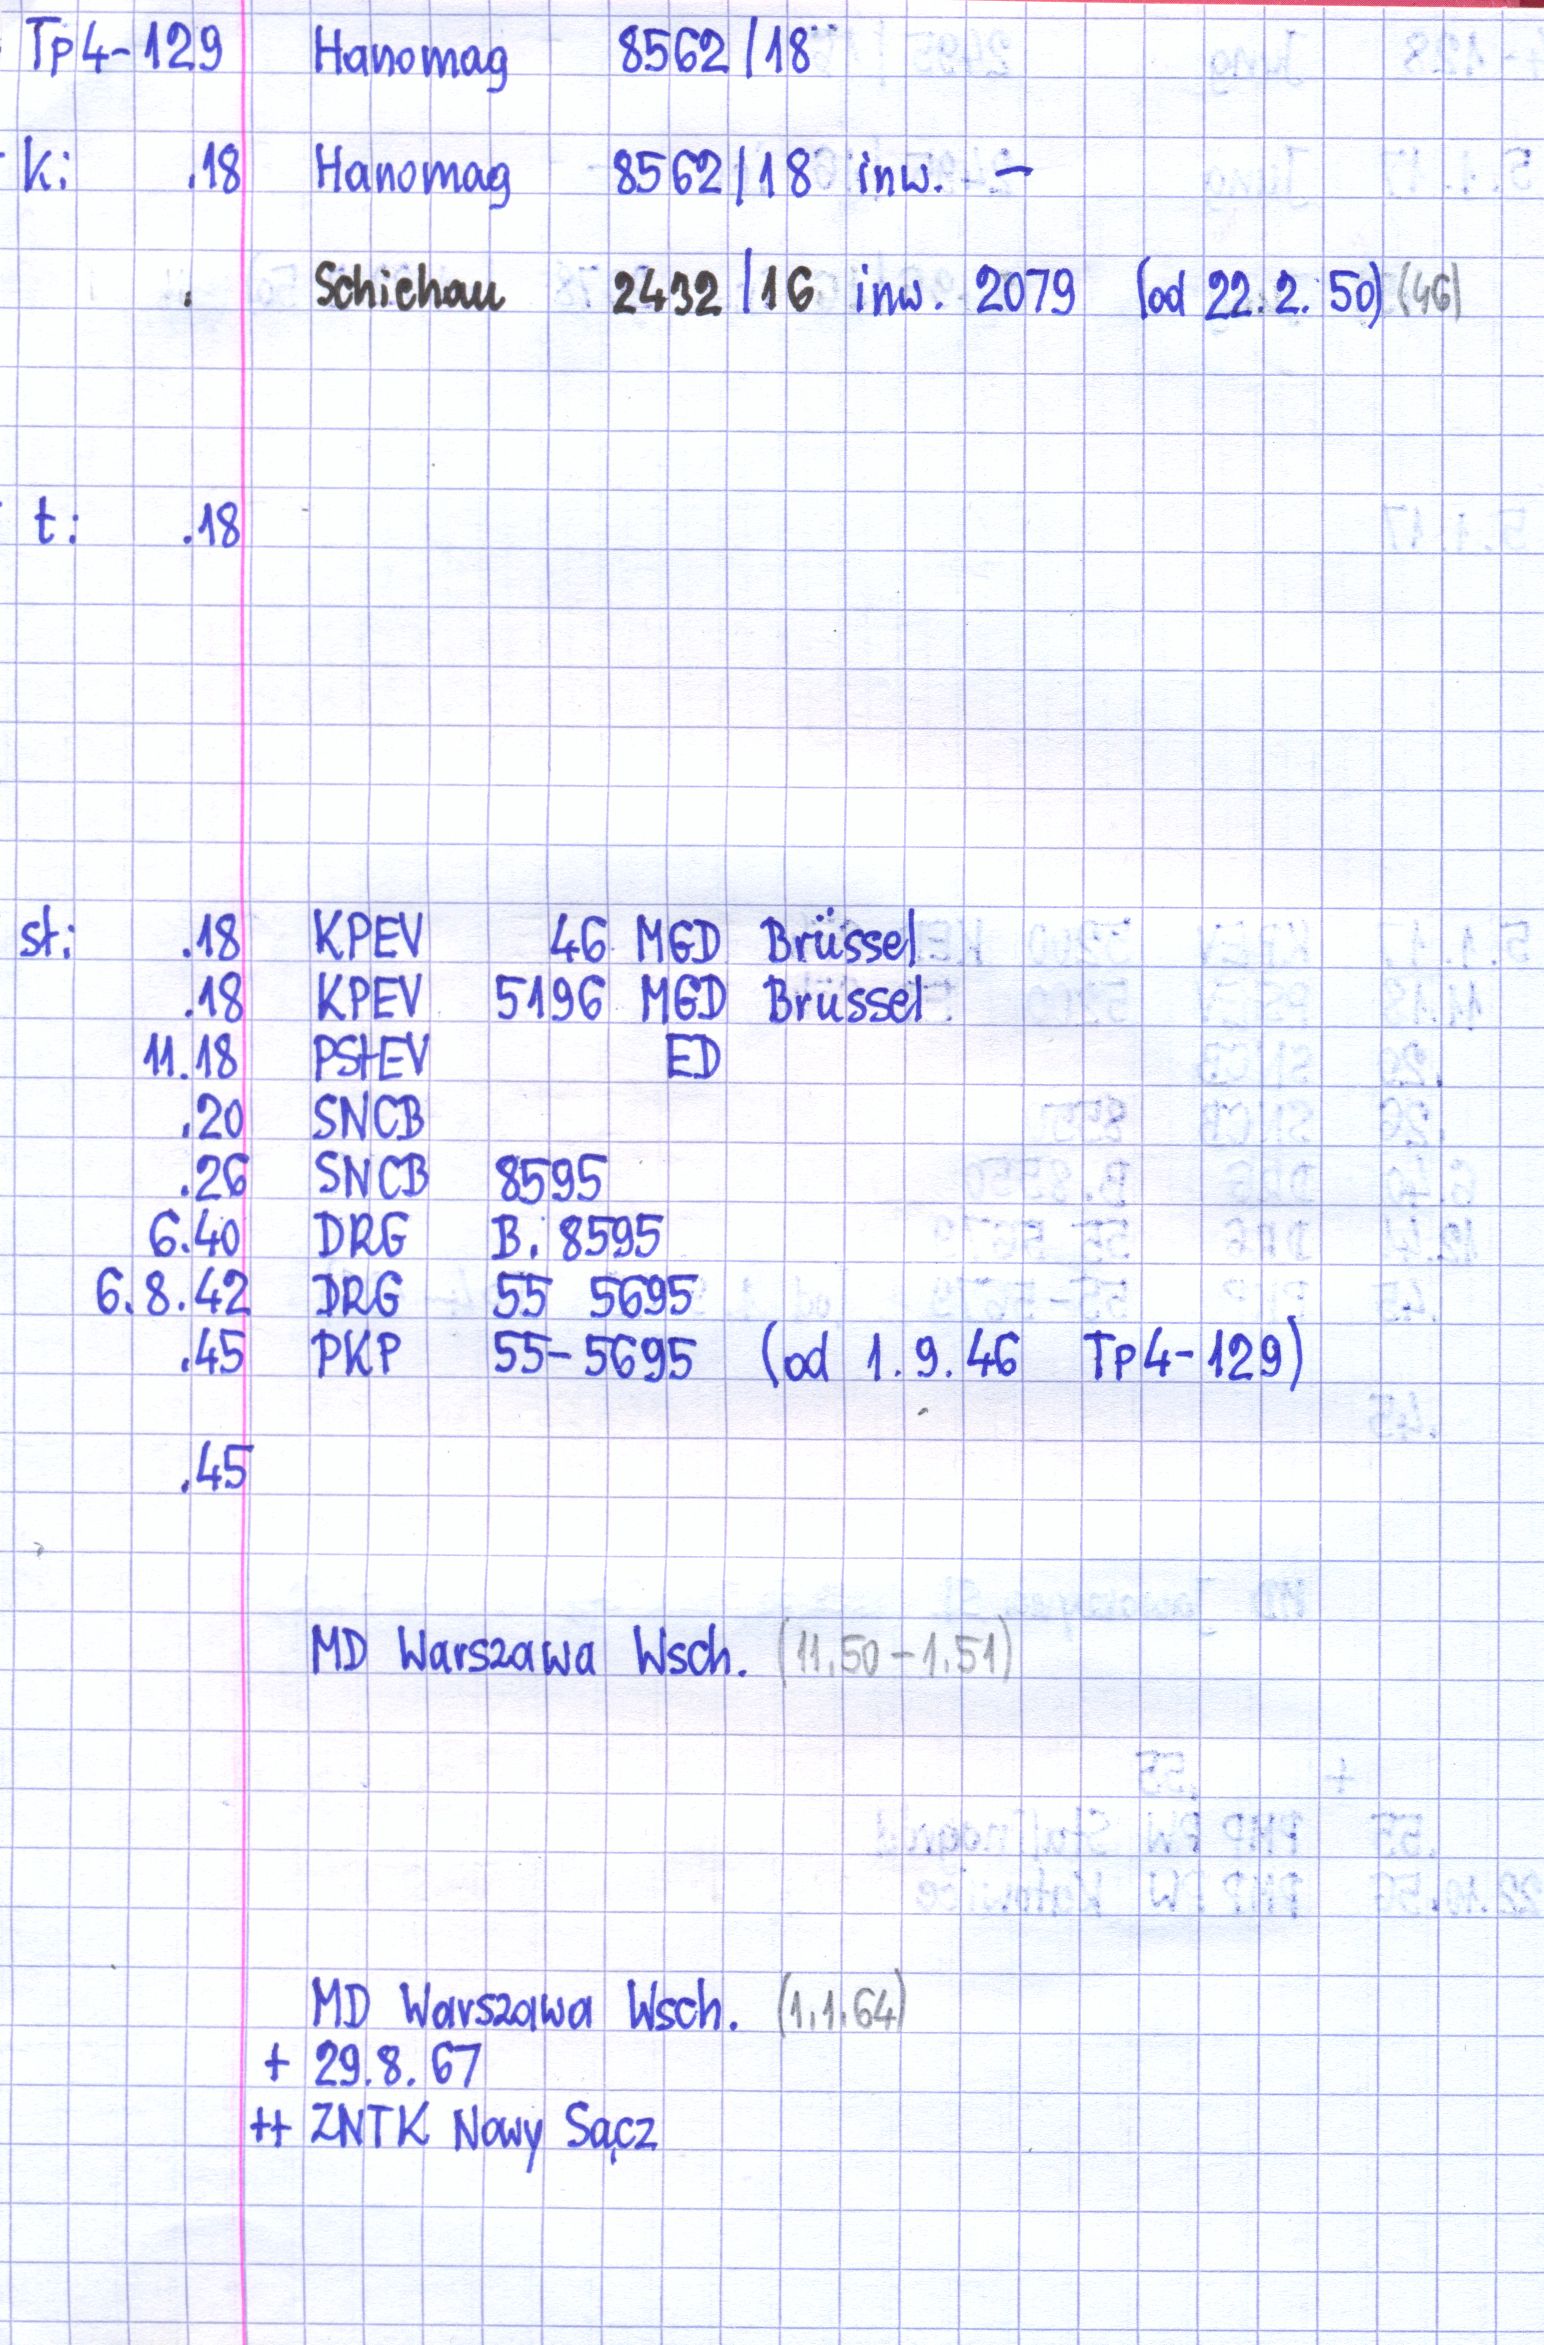 Tp4-129 Hanomag 8562/18
k: .18 Hanomag 8562/18 inw. –
. Schichau 2432/16 inw. 2079 (od 22.2.50) (46)
t: .18
st: .18 KPEV 46 MGD Brüssel
.18 KPEV 5196 MGD Brussel
11.18 PStEV ED
.20 SNCB
.26 SNCB 8595
6.40 DRG B. 8595
6.8.42 DRG 55 5695
.45 PKP 55-5695 (od 1.9.46 Tp4-129)
.45
MD Warszawa Wsch. (11.50-1.51)
MD Warszawa Wsch. (1.1.64)
+ 29.8.67
++ ZNTK Nowy Sącz